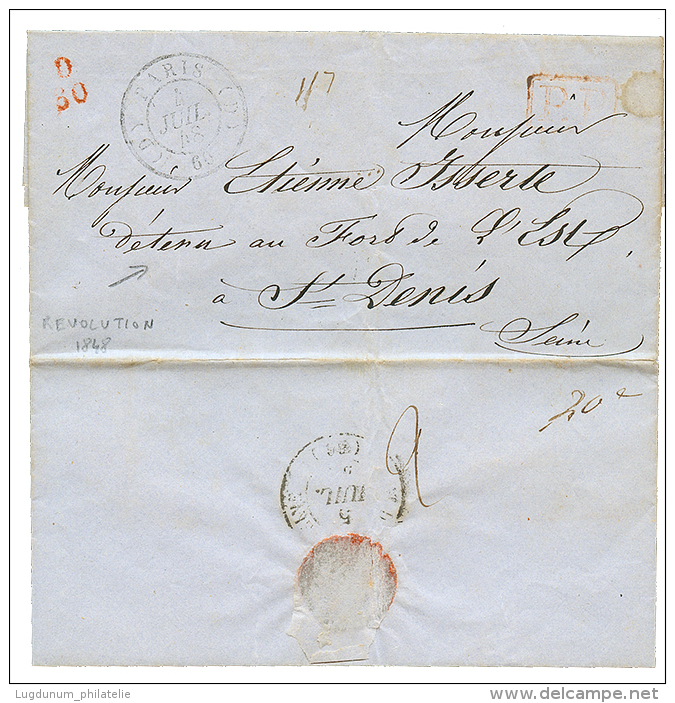 D
30
PARIS (D)
(D) 60
JUIL.
48
P.P.
Monsieur
Monsieur Etienne Isserte
détenu au Fort de L'Est,
à St Denis
Seine
REVOLUTION
1848
20c
2
(60)
2
JUIL.
5
Lugdunum_philatelie
www.delcampe.net